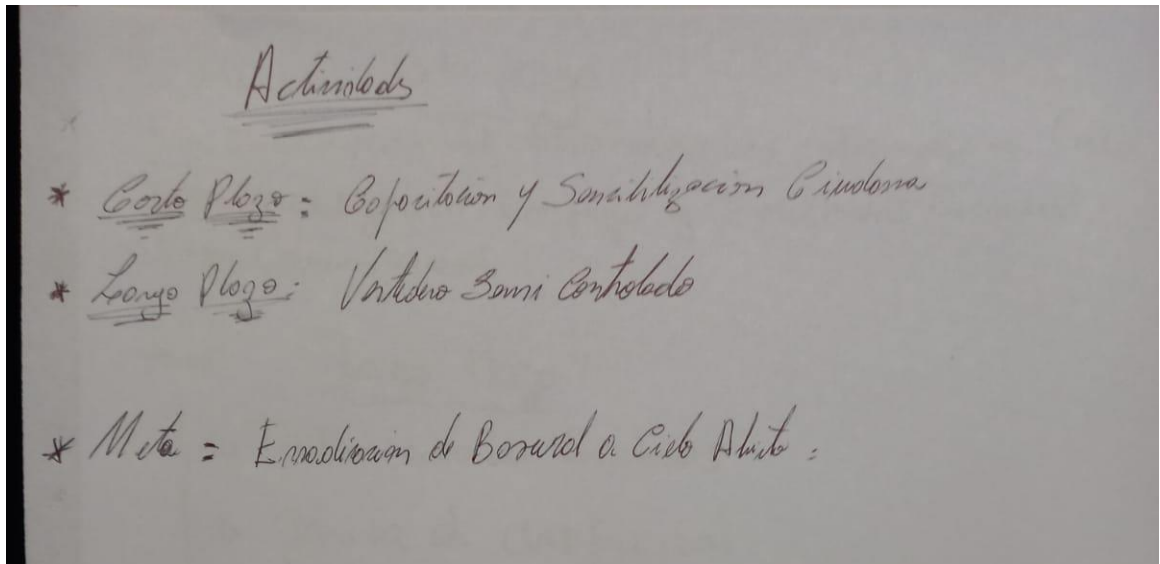 Actividades
* Corto Plazo: Capacitación y Sensibilización Ciudadana
* Largo Plazo: Vertedero Semi Controlado
* Meta = Erradicación de Basural a Cielo Abierto.